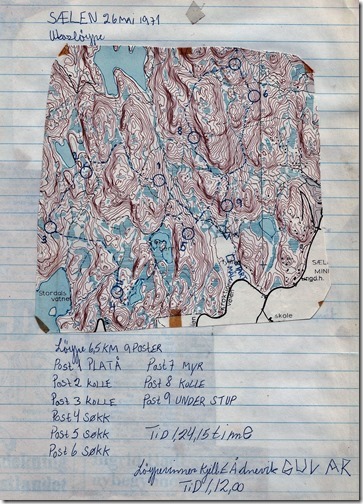 SÆLEN 26 MAI 1971
løype
Stordals
vatne
SÆL
MINI
ngd.h.
skole
Løype 6,5 KM 9 POSTER
Post 1 PLATÅ Post 7 MYR
Post 2 KOLLE Post 8 KOLLE
Post 3 KOLLE Post 9 UNDER STUP
Post 4 SØKK
Post 5 SØKK TiD 1,24,15 time
Post 6 SØKK
Løypevinner Kjell
TiD 1,12,00